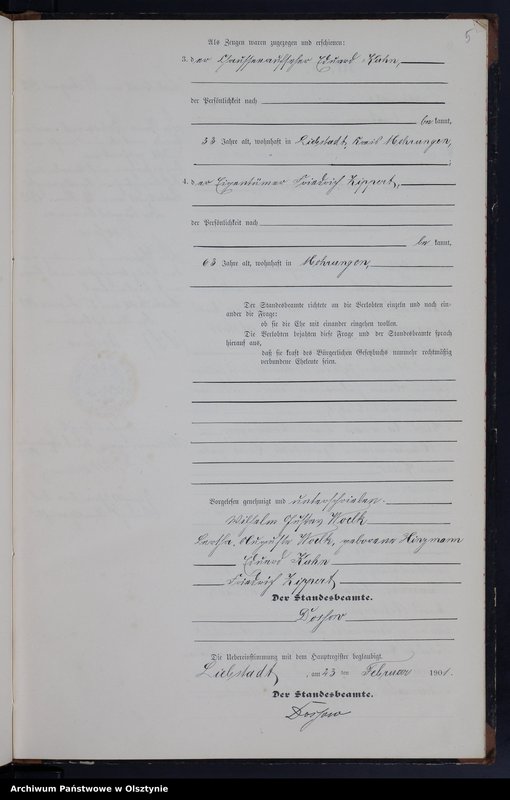 5
Als Zeugen waren zugezogen und erschienen:
3. der Chausseeaufseher Eduard Kuhn,
der Persönlichkeit nach
bekannt,
33 Jahre alt, wohnhaft in Liebstadt, Kreis Mohrungen,
4. der Eigentümer Friedrich Zippert,
der Persönlichkeit nach
bekannt,
63 Jahre alt, wohnhaft in Mohrungen,
Der Standesbeamte richtete an die Verlobten einzeln und nach ein-
ander die Frage:
ob sie die Ehe mit einander eingehen wollen.
Die Verlobten bejahten diese Frage und der Standesbeamte sprach
hierauf aus,
daß sie kraft des Bürgerlichen Gesetzbuchs nunmehr rechtmäßig
verbundene Eheleute seien.
Vorgelesen, genehmigt und unterschrieben.
Wilhelm Gustav Woelk
Bertha Auguste Woelk, geborene Hinzmann
Eduard Kuhn
Friedrich Zippert
Der Standesbeamte.
Die Uebereinstimmung mit dem Hauptregister beglaubigt.
Liebstadt, am 23 ten Februar 1901.
Der Standesbeamte.
Archiwum Państwowe w Olsztynie